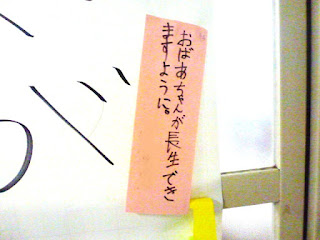 おばあちゃんが長生でき
ますように。